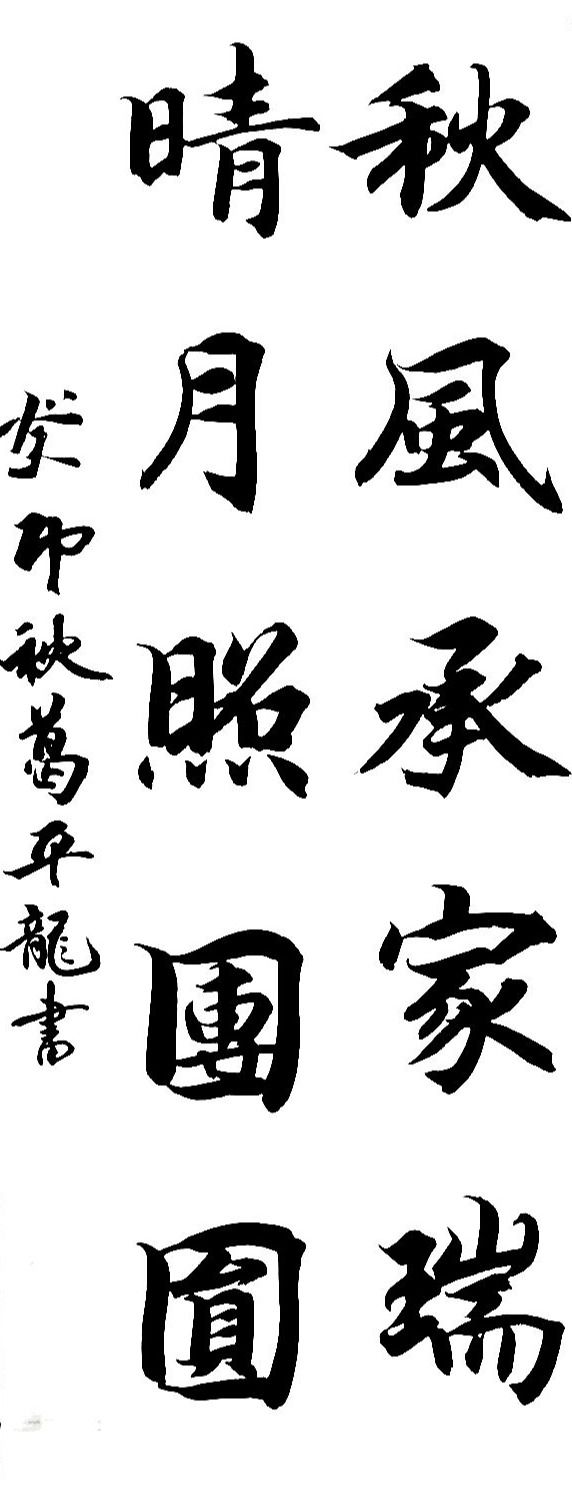 秋風承家瑞
晴月照團圓
癸卯秋葛平龍書